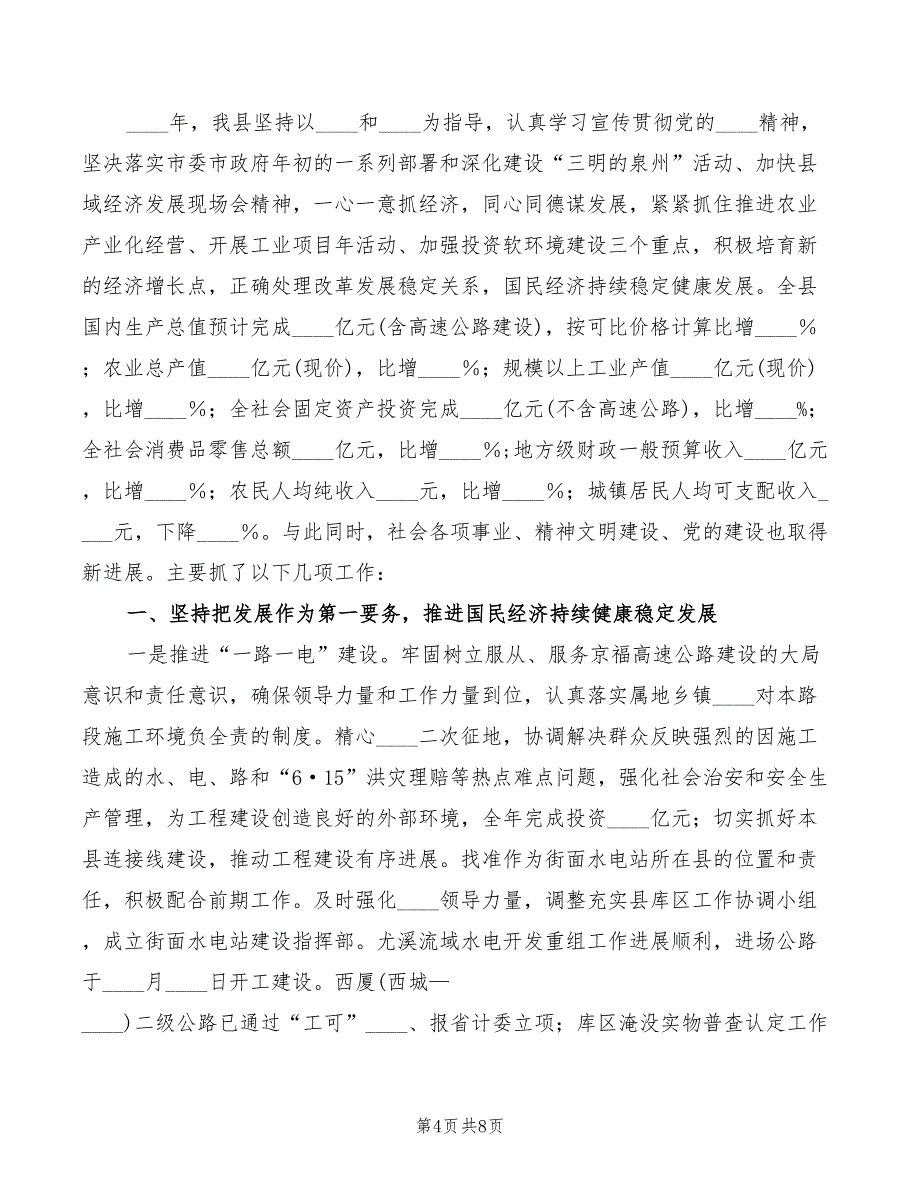 ____年，我县坚持以____和____为指导，认真学习宣传贯彻党的____精神，
坚决落实市委市政府年初的一系列部署和深化建设“三明的泉州”活动、加快县
域经济发展现场会精神，一心一意抓经济，同心同德谋发展，紧紧抓住推进农业
产业化经营、开展工业项目年活动、加强投资软环境建设三个重点，积极培育新
的经济增长点，正确处理改革发展稳定关系，国民经济持续稳定健康发展。全县
国内生产总值预计完成____亿元(含高速公路建设)，按可比价格计算比增____%
；农业总产值____亿元(现价)，比增____%；规模以上工业产值____亿元(现价)
，比增____%；全社会固定资产投资完成____亿元(不含高速公路)，比增____%；
全社会消费品零售总额____亿元，比增____%;地方级财政一般预算收入____亿元
，比增____%；农民人均纯收入____元，比增____%；城镇居民人均可支配收入_
___元，下降____%。与此同时，社会各项事业、精神文明建设、党的建设也取得
新进展。主要抓了以下几项工作：
一、坚持把发展作为第一要务，推进国民经济持续健康稳定发展
一是推进“一路一电”建设。牢固树立服从、服务京福高速公路建设的大局
意识和责任意识，确保领导力量和工作力量到位，认真落实属地乡镇____对本路
段施工环境负全责的制度。精心____二次征地，协调解决群众反映强烈的因施工
造成的水、电、路和“6·15”洪灾理赔等热点难点问题，强化社会治安和安全生
产管理，为工程建设创造良好的外部环境，全年完成投资____亿元；切实抓好本
县连接线建设，推动工程建设有序进展。找准作为街面水电站所在县的位置和责
任，积极配合前期工作。及时强化____领导力量，调整充实县库区工作协调小组
，成立街面水电站建设指挥部。尤溪流域水电开发重组工作进展顺利，进场公路
于____月____日开工建设。西厦(西城—
____)二级公路已通过“工可”____、报省计委立项；库区淹没实物普查认定工作
第4页 共8页